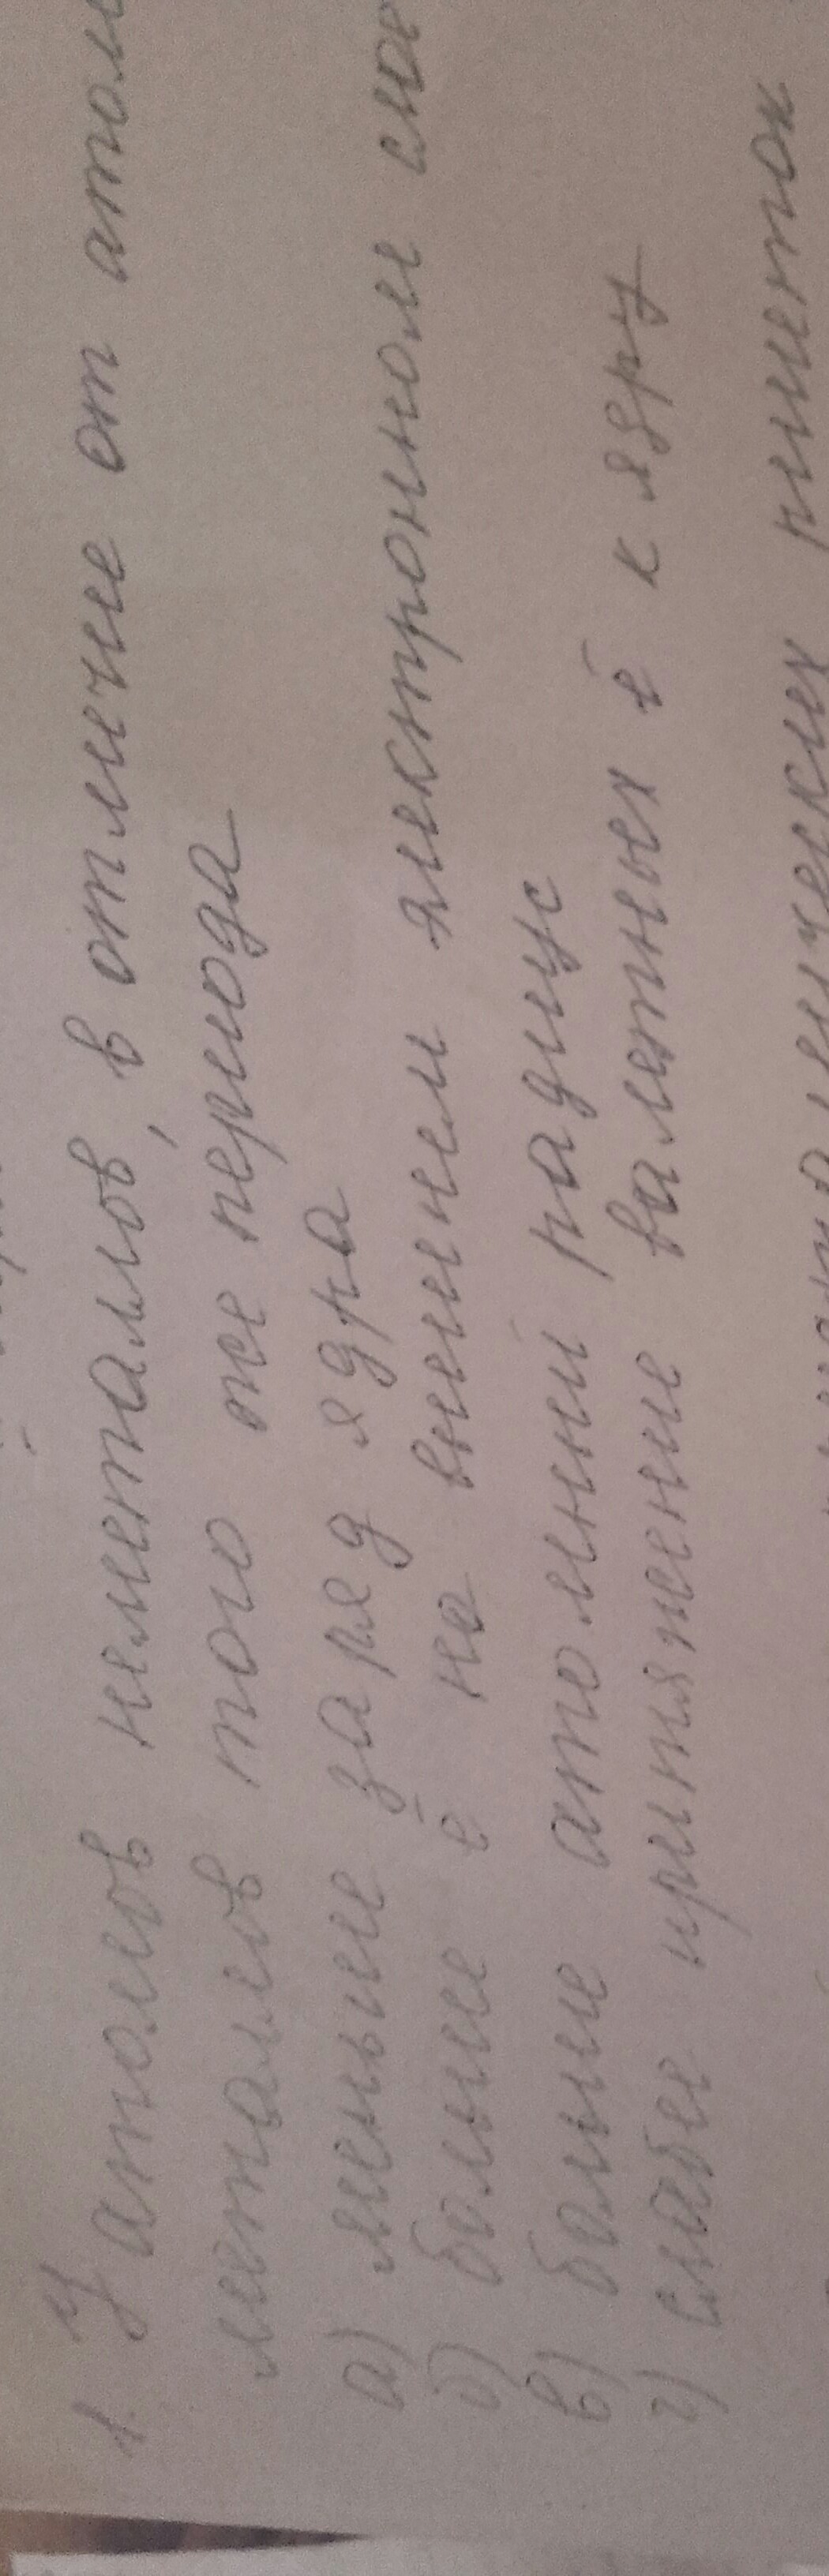 1. У атомов неметаллов, в отличие от атом
металлов того же периода
а) меньше заряд ядра
б) больше ē на внешнем электронном слое
в) больше атомный радиус
г) слабее притяжение валетных ē к ядру